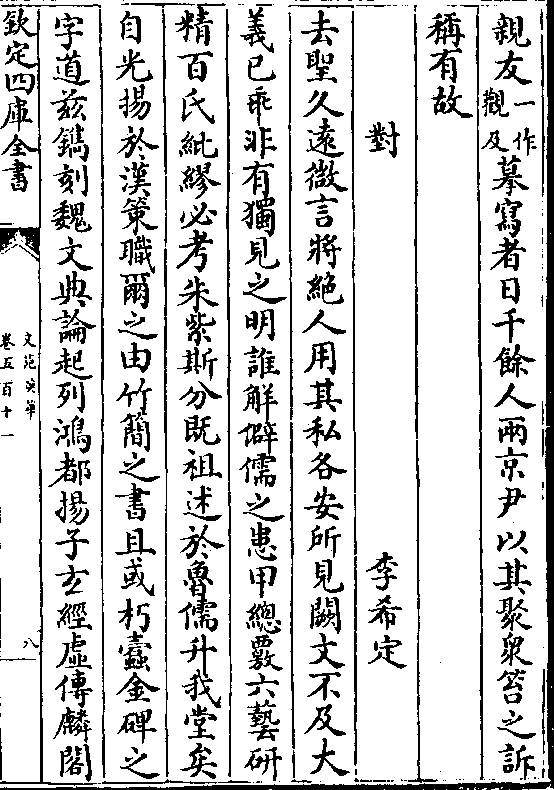 親友一作觀及摹寫者日千餘人兩京尹以其聚衆笞之訴
稱有故
對　李希定
去聖久遠微言將絶人用其私各安所見闕文不及大
義已乖非有獨見之明誰解僻儒之患甲總覈六藝研
精百氏紕繆必考朱紫斯分既祖述於魯儒升我堂矣
自光揚於漢策職爾之由竹簡之書且或朽蠧金碑之
字道兹鐫刻魏文典論起列鴻都揚子𤣥經虚傳麟閣
欽定四庫全書
文苑英華
卷五百十一
八